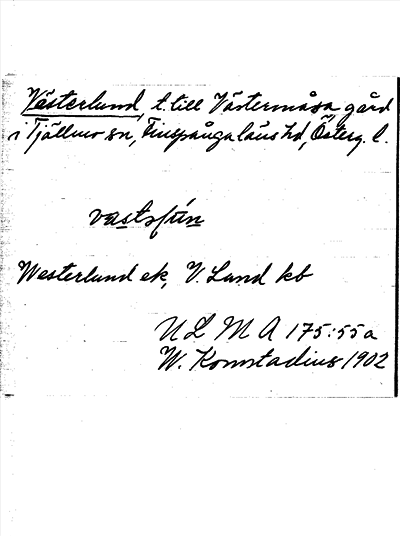 Västerlund, t. till Västermåsa gård
i Tjällmo sn, Finspånga läns hd, Österg. l.
Westerlund ek, V. Lund kb
ULMA 175:55a
W. Komstadius 1902